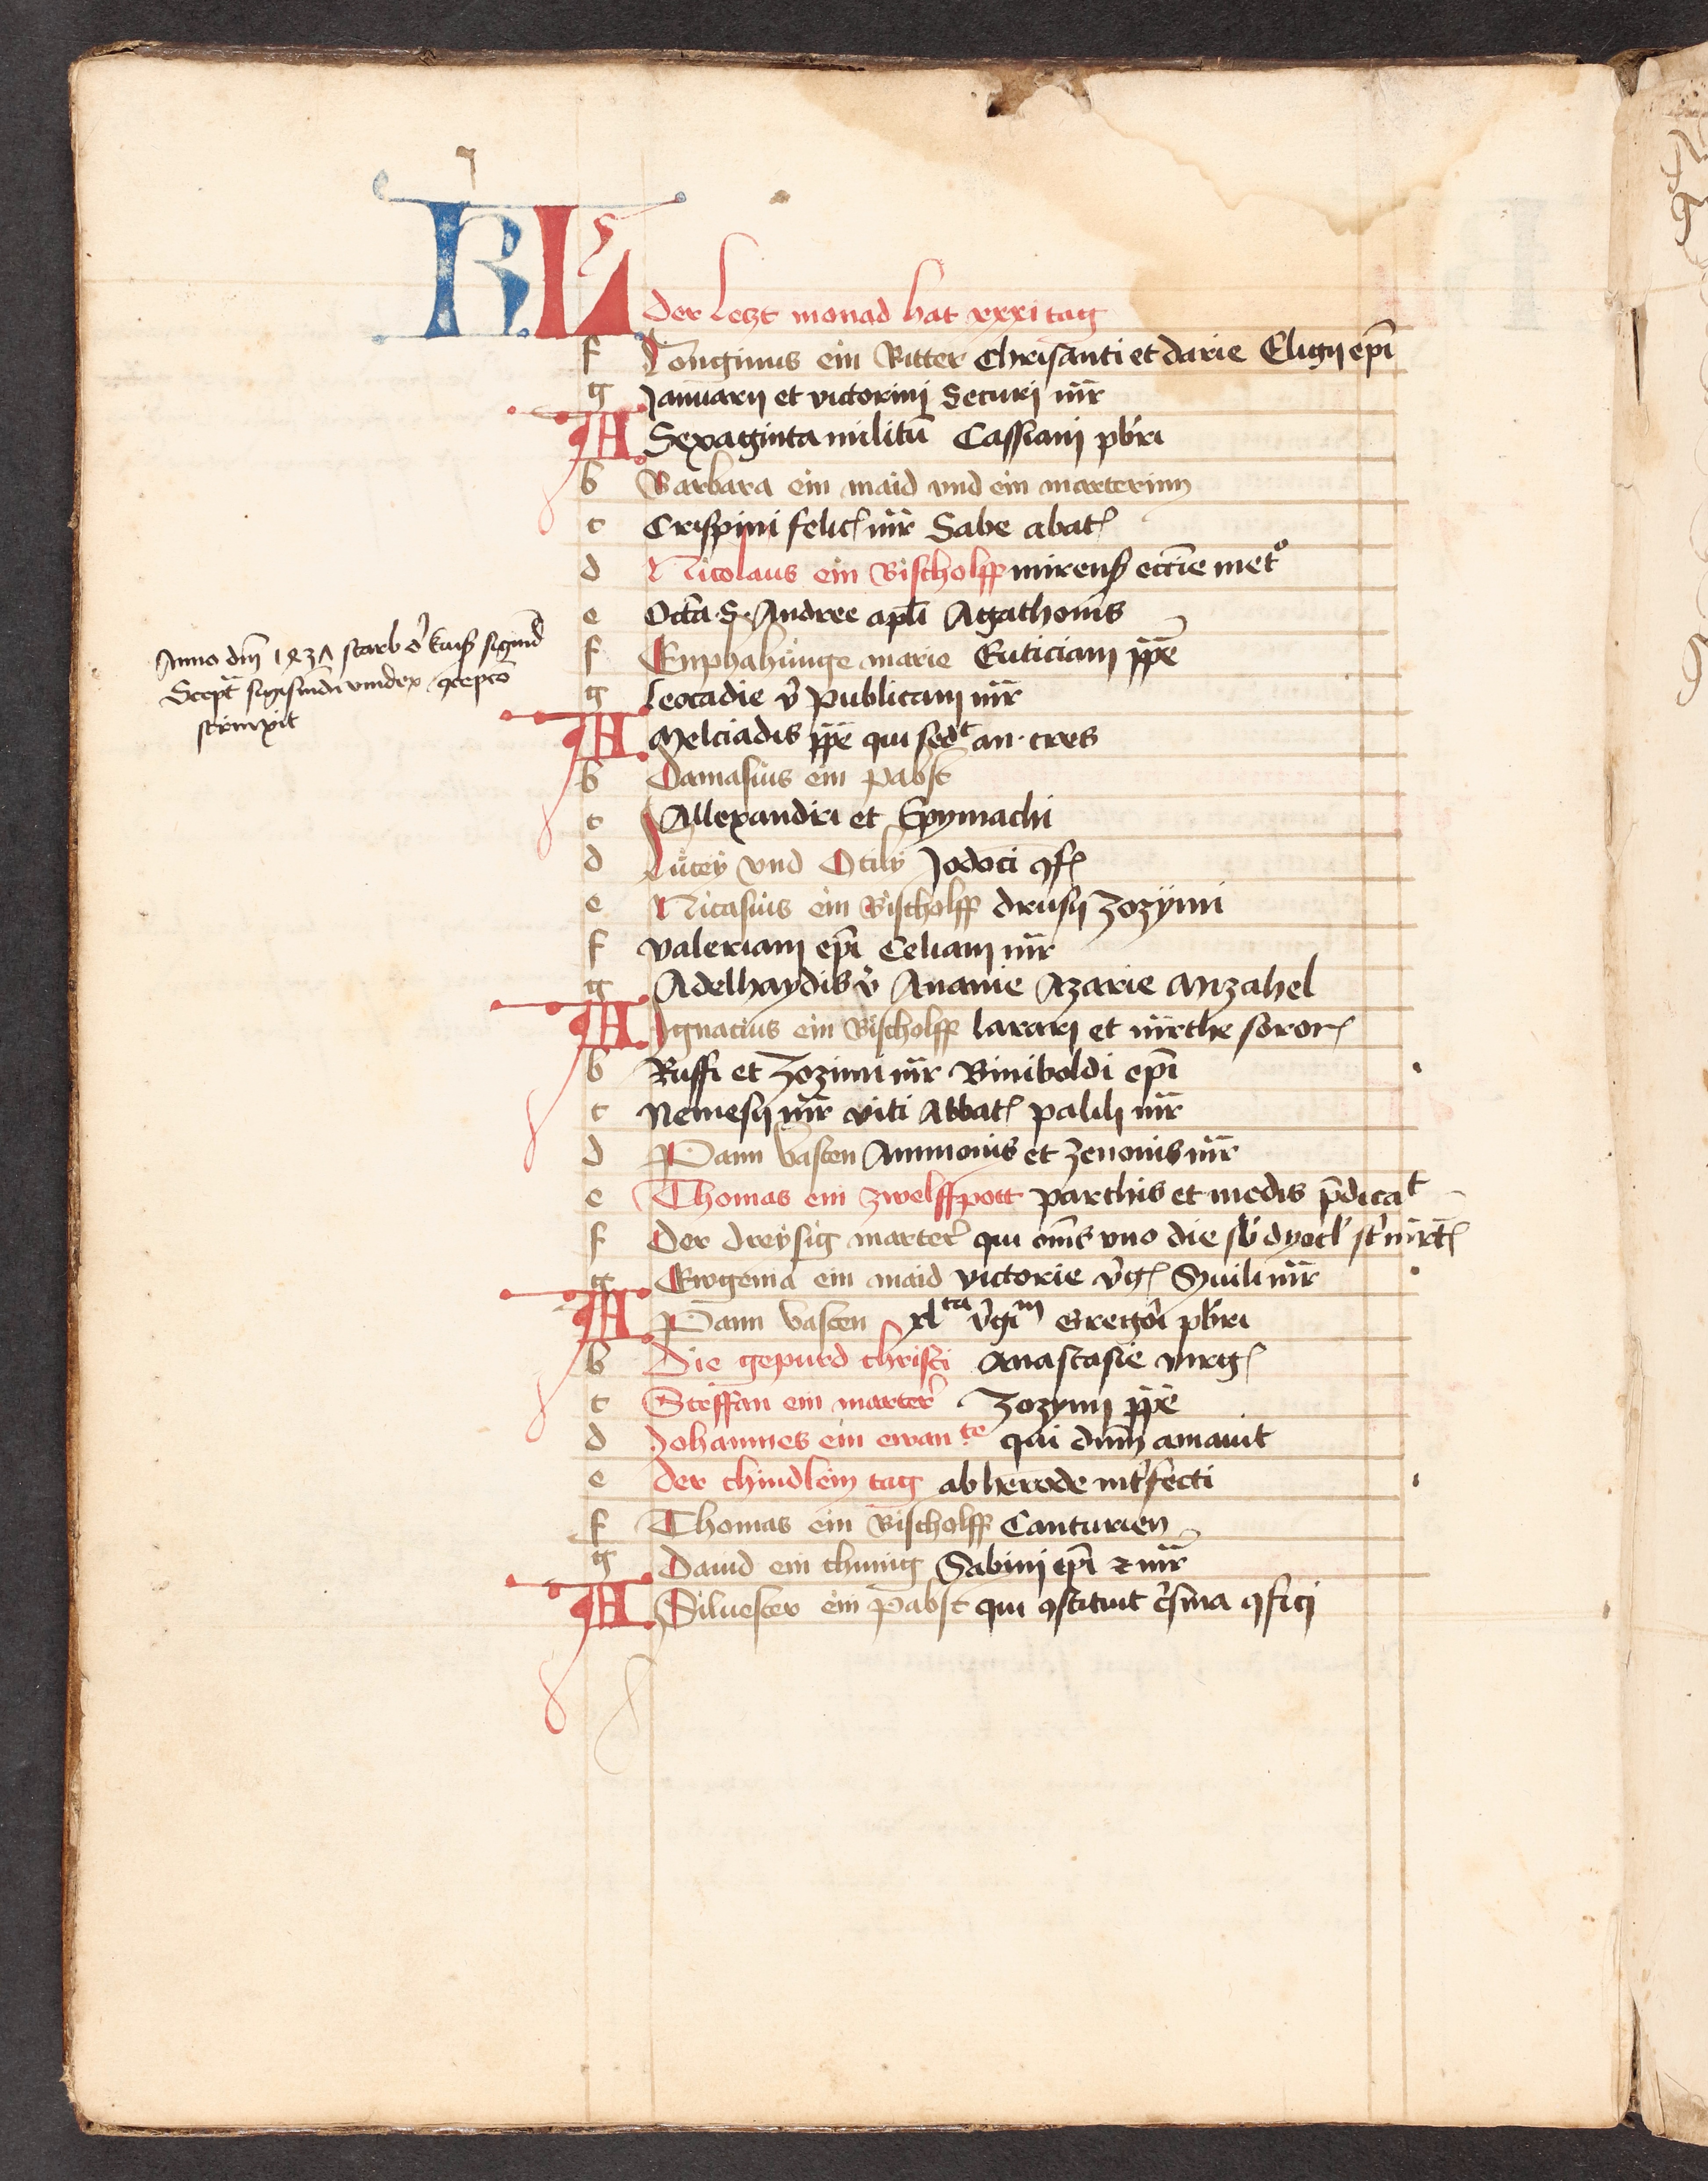 KL
der letzt monad hat xxxi tag
f Longinus ein Ritter Chrisanti et darie Eligij ep̄i
g Januarij et victorinj Securj m̄r
A Sexaginta militū Cassianj pb̄ri
b Barbara ein maid vnd ein marterinn
c Crispini felic̄ m̄r Sabe abat̄
d Nicolaus ein Bischolff mirenß eccīe met°
e Octā S. Andree apl̄i Agathonis
f Enphahunge marie Euticianj pp̄e
Anno dn̄i 1437 starb d̄ kaiß sigmd̄
Scept̄ sigismūdi vindex
strinxit
g leocadie v̄ publicanj m̄r
A Melciadis pp̄e qui sedᵗ an. tres
b Damasius ein pabst
c Allexandri et Epymachi
d Lucey vnd Otily Jodoci ꝯf̄
e Nicasius ein Bischolff drusij zozÿmi
f valerianj ep̄i Celianj m̄r
g Adelhaydis v̄ Ananie Azarie Mizahel
A Ignacius ein Bischolff lazarj et m̄rthe soror̄
b Ruffi et Zozimi m̄r Biniboldi ep̄i
c Nemesij m̄r viti Abbat̄ palilj m̄r
d Pann vasten Ammonis et zenonis m̄r
e Thomas ein zwelffpott parthis et medis p̄dicaᵗ
f Der dreysig marter̄ qui om̄s vno die sb̄ dyocl̄ st̄ m̄rt̄
g Ewgenia ein maid victorie v̄ḡ m̄r
A Pann vasten xlᵗᵃ v̄giᵐ Gregōi pb̄ri
b Die gepurd christi Anastasie virḡ
c Steffan ein marter̄ Zozymj pp̄e
d Johannes ein ewanᵗᵉ qui dn̄m amauit
e der chindlein tag ab herode int̄fecti
f Thomas ein Bischolff Canturien
g Dauid ein chunig Sabinj ep̄i ⁊ m̄r
A Siluester ein pabst qui ꝯstituit c̄sma ꝯficj